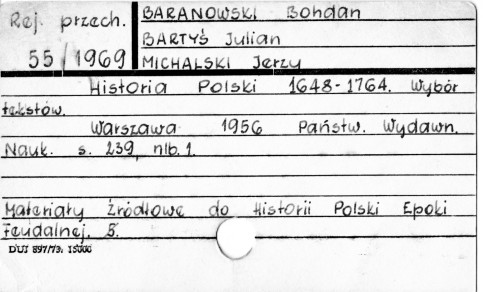 Rej. przech.
55/1969
BARANOWSKI Bohdan
BARTYŚ Julian
MICHALSKI Jerzy
Historia Polski 1648-1764. Wybór
tekstów.
Warszawa 1956 Państw. Wydawn.
Nauk. s. 239, nlb. 1.
Materiały źródłowe do Historii Polski Epoki
Feudalnej. 5.
DUJ 897/73. 15000